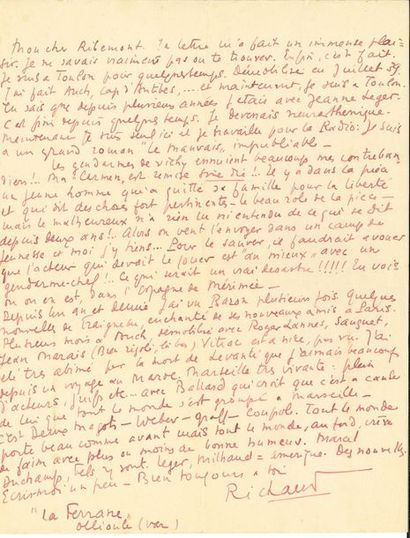 Mon cher Ribemont. Ta lettre m'a fait un immense plai-
sir. Je ne savais vraiment pas où te trouver. Enfin, c'est fait.
Je vis à Toulon pour quelque temps. Démobilisé en Juillet
J'ai fait Auch, Cap d'Antibes, .... et maintenant, je vis à Toulon.
Tu sais que depuis plusieurs années j'étais avec Jeanne Leger.
C'est fini depuis quelque temps. Je devenais neurasthénique.
Maintenant je vis seul ici et je travaille pour la Radio. Je suis
à un grand roman "le mauvais, impubliable" -
Les gendarmes de Vichy ennuient beaucoup mes contreban
diers!! Ma Carmen, est remise !! Il y a dans la pièce
un jeune homme qui a quitté sa famille pour la liberté
et qui dit des choses fort pertinentes - le beau rôle de la pièce -
mais le malheureux n'a rien lu ni entendu de ce qui se dit
depuis deux ans!! Alors on veut l'envoyer dans un camp de
jeunesse et moi j'y tiens... Pour le sauver, il faudrait avouer
que l'acteur qui devait le jouer est du mieux avec un
gendarme-chef!.. Ce qui serait un vrai désastre!!!!! Tu vois
où on en est, dans l'Espagne de Mérimée -
Depuis un an et demi, j'ai vu plusieurs fois quelques
nouvelles de enchanté de ses nouveaux amis à Paris.
Plusieurs mois à Auch, démobilisé avec Roger Lannes, Sauguet,
Jean Marais (Bien rigolé. le bar) Vitrac est à Nice, pas vu. J'ai
été très abîmé par la mort de Levanti que j'aimais beaucoup
depuis un voyage au Maroc. Marseille très vivante: plein
d'acteurs, juifs etc... avec Ballard qui croit que c'est à cause
de lui que tout le monde s'est groupé à Marseille -
C'est Deux Magots - Weber - Graff - Coupole. Tout le monde
porte beau comme avant mais tout le monde, au fond, crève
de faim avec plus ou moins de bonne humeur. Marcel
Duchamp, Tels y sont. Leger, Milhaud = Amérique. Des nouvelles.
Ecris-moi un peu - Bien toujours à toi
Richaud
"La Ferrane"
Ollioules (Var)